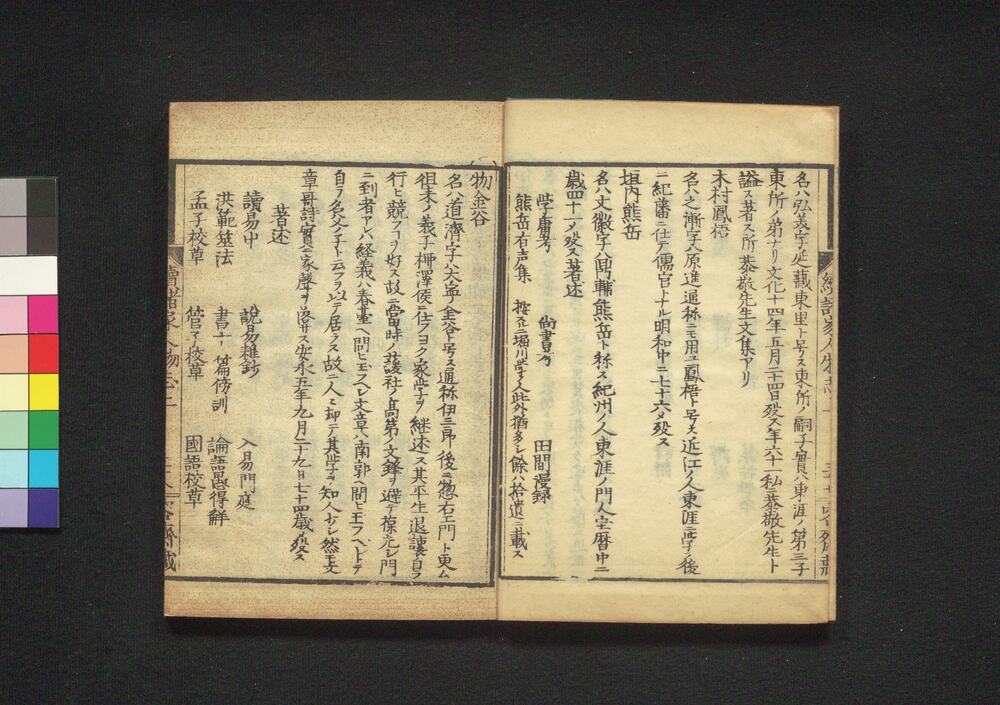 名ハ弘美字ハ延藏東里ト号ス東所ノ嗣子實ハ東涯ノ第三子
東所ノ弟ナリ文化十四年五月二十四日殁ス年六十一私ニ恭敬先生ト
謚ス著ス所恭敬先生文集アリ
木村鳳梧
名ハ之漸字ハ原進通称ニモ用ユ鳳梧ト号ス近江ノ人東涯ニ学ノ後
ニ紀藩ニ仕テ儒官トナル明和中ニ七十六ニメ殁ス
垣内熊岳
名ハ文徽字ハ問輔熊岳ト称ス紀州ノ人東涯ノ門人宝暦中ニ
歳四十一ニメ殁ス著述
学庸考 尚書考 田間漫録
熊岳有声集 按スルニ堀川学ノ人此外猶多シ餘ハ拾遺ニ載ス
物金谷
名ハ道濟字ハ大寧金谷ト号ス通称伊三郎後ニ惣右エ門ト更ム
徂来ノ義子柳澤侯ニ仕フヨク家学ヲ継述ス其平生退譲自ラ
行ヒ競フヿヲ好ス故ニ當時ノ蘐社ノ高第ノ文鋒ヲ避テ葆光シ門
ニ到者アレハ経義ハ春臺ヘ問ヒ玉フヘシ文章ハ南郭ヘ問ヒ玉フヘシトテ
自ラ名父ノ子ト云フヲ以テ居ラス故ニ人ミ却テ其学ヲ知人少シ然モ文
章哥詩實ニ家聲ヲ落サス安永五年九月二十九日七十四歳ニメ殁ス
著述
讀易中 說易雜鈔 入易門庭
洪範筮法 書十一篇傍訓 論語愚得解
孟子校草 管子校草 國語校草
續諸家人物志二